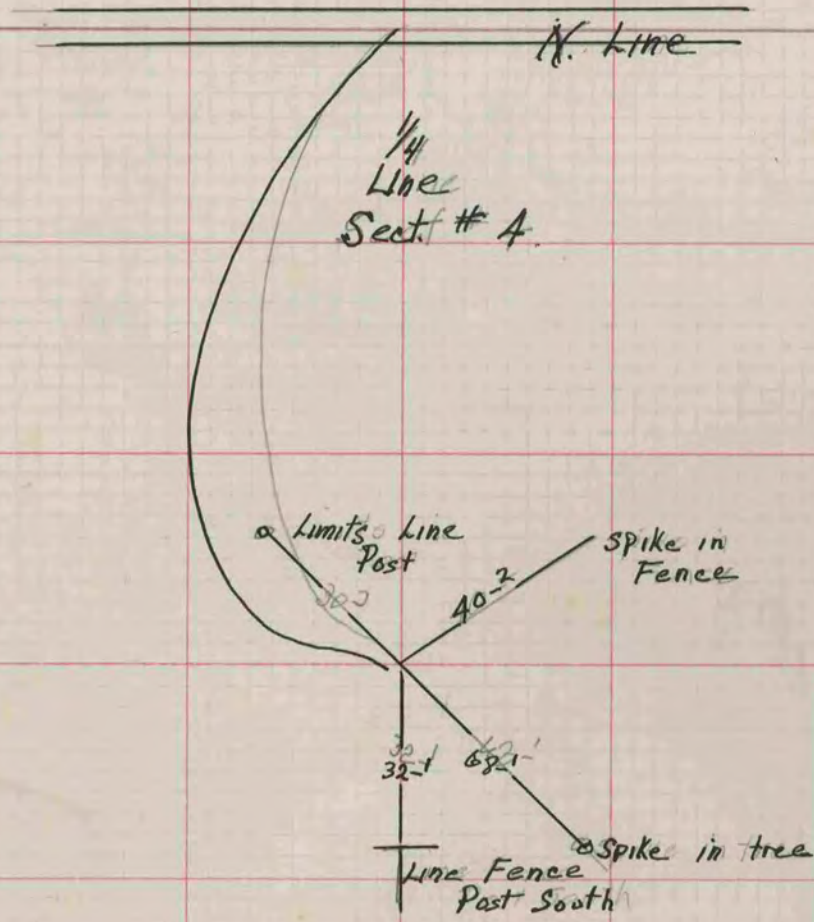 N. Line
1/4
Line
Sect. # 4.
Limits Line
Post
Spike in
Fence
40-2
32-1
68-1
Spike in tree
Line Fence
Post South